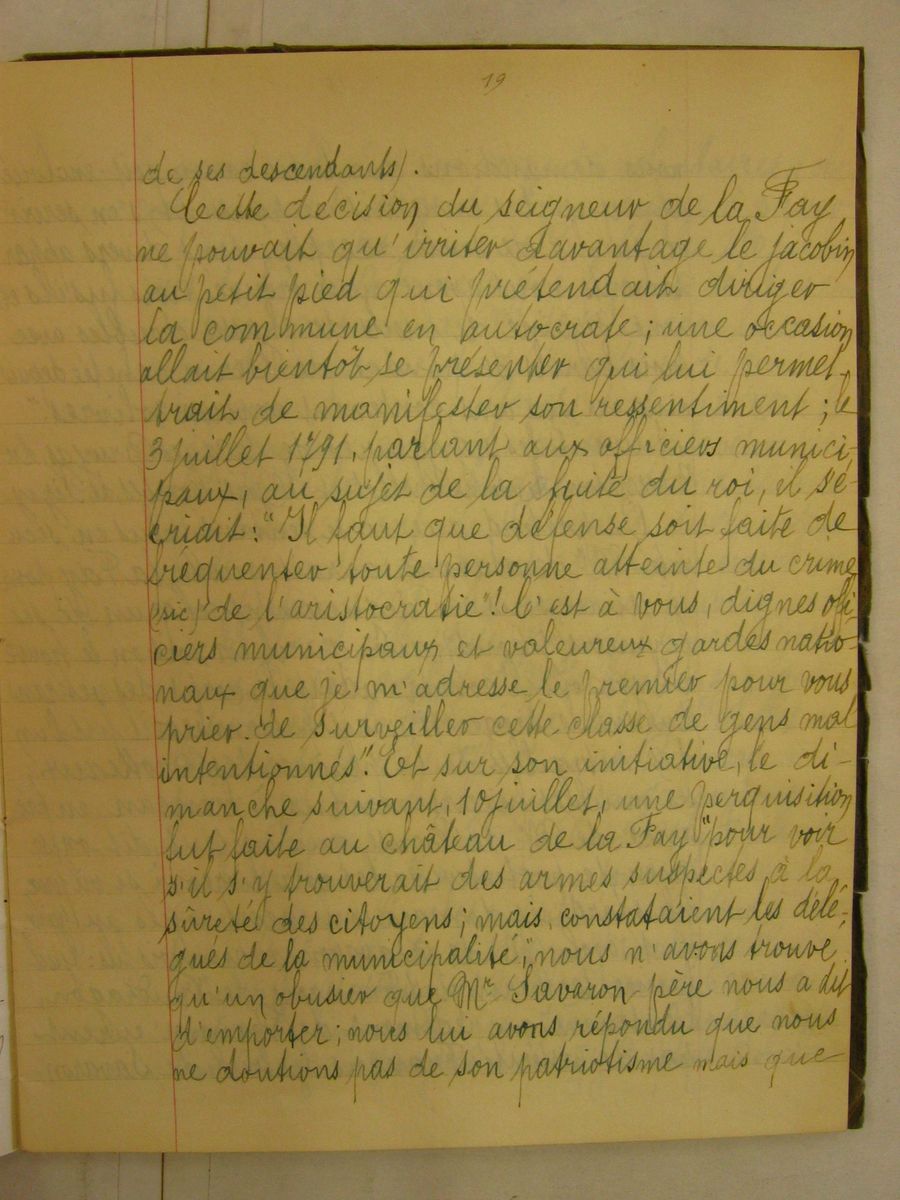 19
de ses descendants).
Cette décision du seigneur de la Fay
ne pouvait qu'irriter davantage le jacobin
au petit pied qui prétendait diriger
la commune en autocrate ; une occasion
allait bientôt se présenter qui lui permet-
trait de manifester son ressentiment ; le
3 juillet 1791, parlant aux officiers munici-
paux, au sujet de la fuite du roi, il s'é-
criait : "Il faut que défense soit faite de
fréquenter toute personne atteinte du crime
(sic) de l'aristocratie" ! C'est à vous, dignes offi-
ciers municipaux et valeureux gardes natio-
naux que je m'adresse le premier pour vous
prier de surveiller cette classe de gens mal
intentionnés". Et sur son initiative, le di-
manche suivant, 10 juillet, une perquisition
fut faite au château de la Fay "pour voir
s'il s'y trouverait des armes suspectes à la
sûreté des citoyens ; mais, constataient les délé-
gués de la municipalité, "nous n'avons trouvé
qu'un obusier que Mr Savaron père nous a dit
d'emporter ; nous lui avons répondu que nous
ne doutions pas de son patriotisme mais que